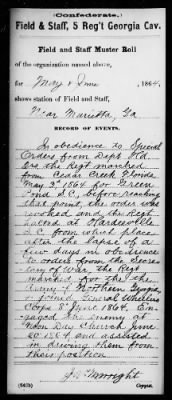 (Confederate.)
Field & Staff, 5 Reg't Georgia Cav.
Field and Staff Muster Roll
of the organization named above,
for May & June, 1864,
shows station of Field and Staff,
Near Marietta, Ga
RECORD OF EVENTS.
In obedience to Special
Orders from Dept Hd
Qrs the Regt marched
from Cedar Creek Florida
May 3d 1864 for Green
Pond S.C., before reaching
that point, the order was
revoked and the Regt
halted at Hardeeville
S.C. from which place
after the lapse of a
few days in obedience
to orders from the Secre
tary of War the Regt
marched for the
Army of Northern Georgia
& joined General Wheelers
Corps 8 June 1864. En
gaged the enemy at
Noon Day Church June
20 1864 and assisted
in driving them from
their position
(545b) Copyist.